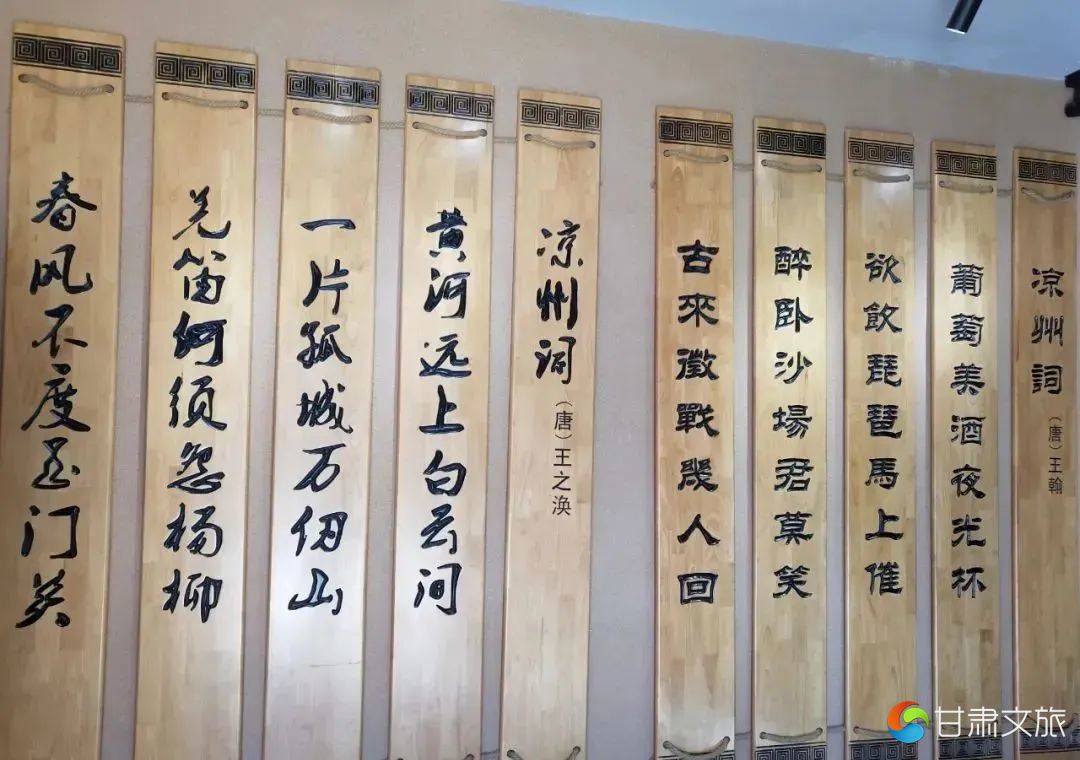 凉州詞（唐）王翰
葡萄美酒夜光杯
欲飲琵琶馬上催
醉卧沙場君莫笑
古來徵戰幾人回
凉州词（唐）王之涣
黄河远上白云间
一片孤城万仞山
羌笛何须怨杨柳
春风不度玉门关
甘肃文旅